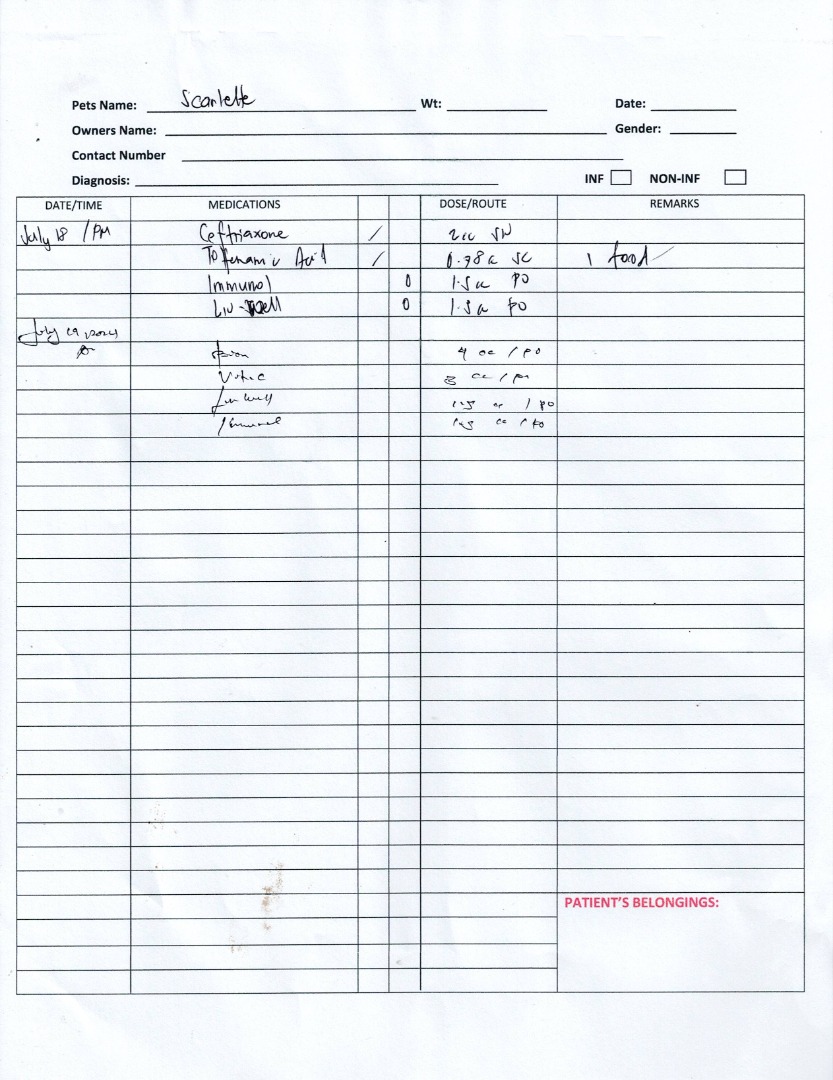 Pets Name: Scarlette Wt: Date:
Owners Name: Gender:
Contact Number
Diagnosis: INF NON-INF
DATE/TIME MEDICATIONS DOSE/ROUTE REMARKS
July 18 / PM Ceftriaxone / 2cc
Tolfenamic Acid / 0.78cc SC 1 food
Immunol 0 1.5cc PO
Liv- 0 1.5cc PO
July 19, 2024
4 cc / PO
3 cc /
1.5 cc / PO
Immunol 1.5 cc / PO
PATIENT'S BELONGINGS: